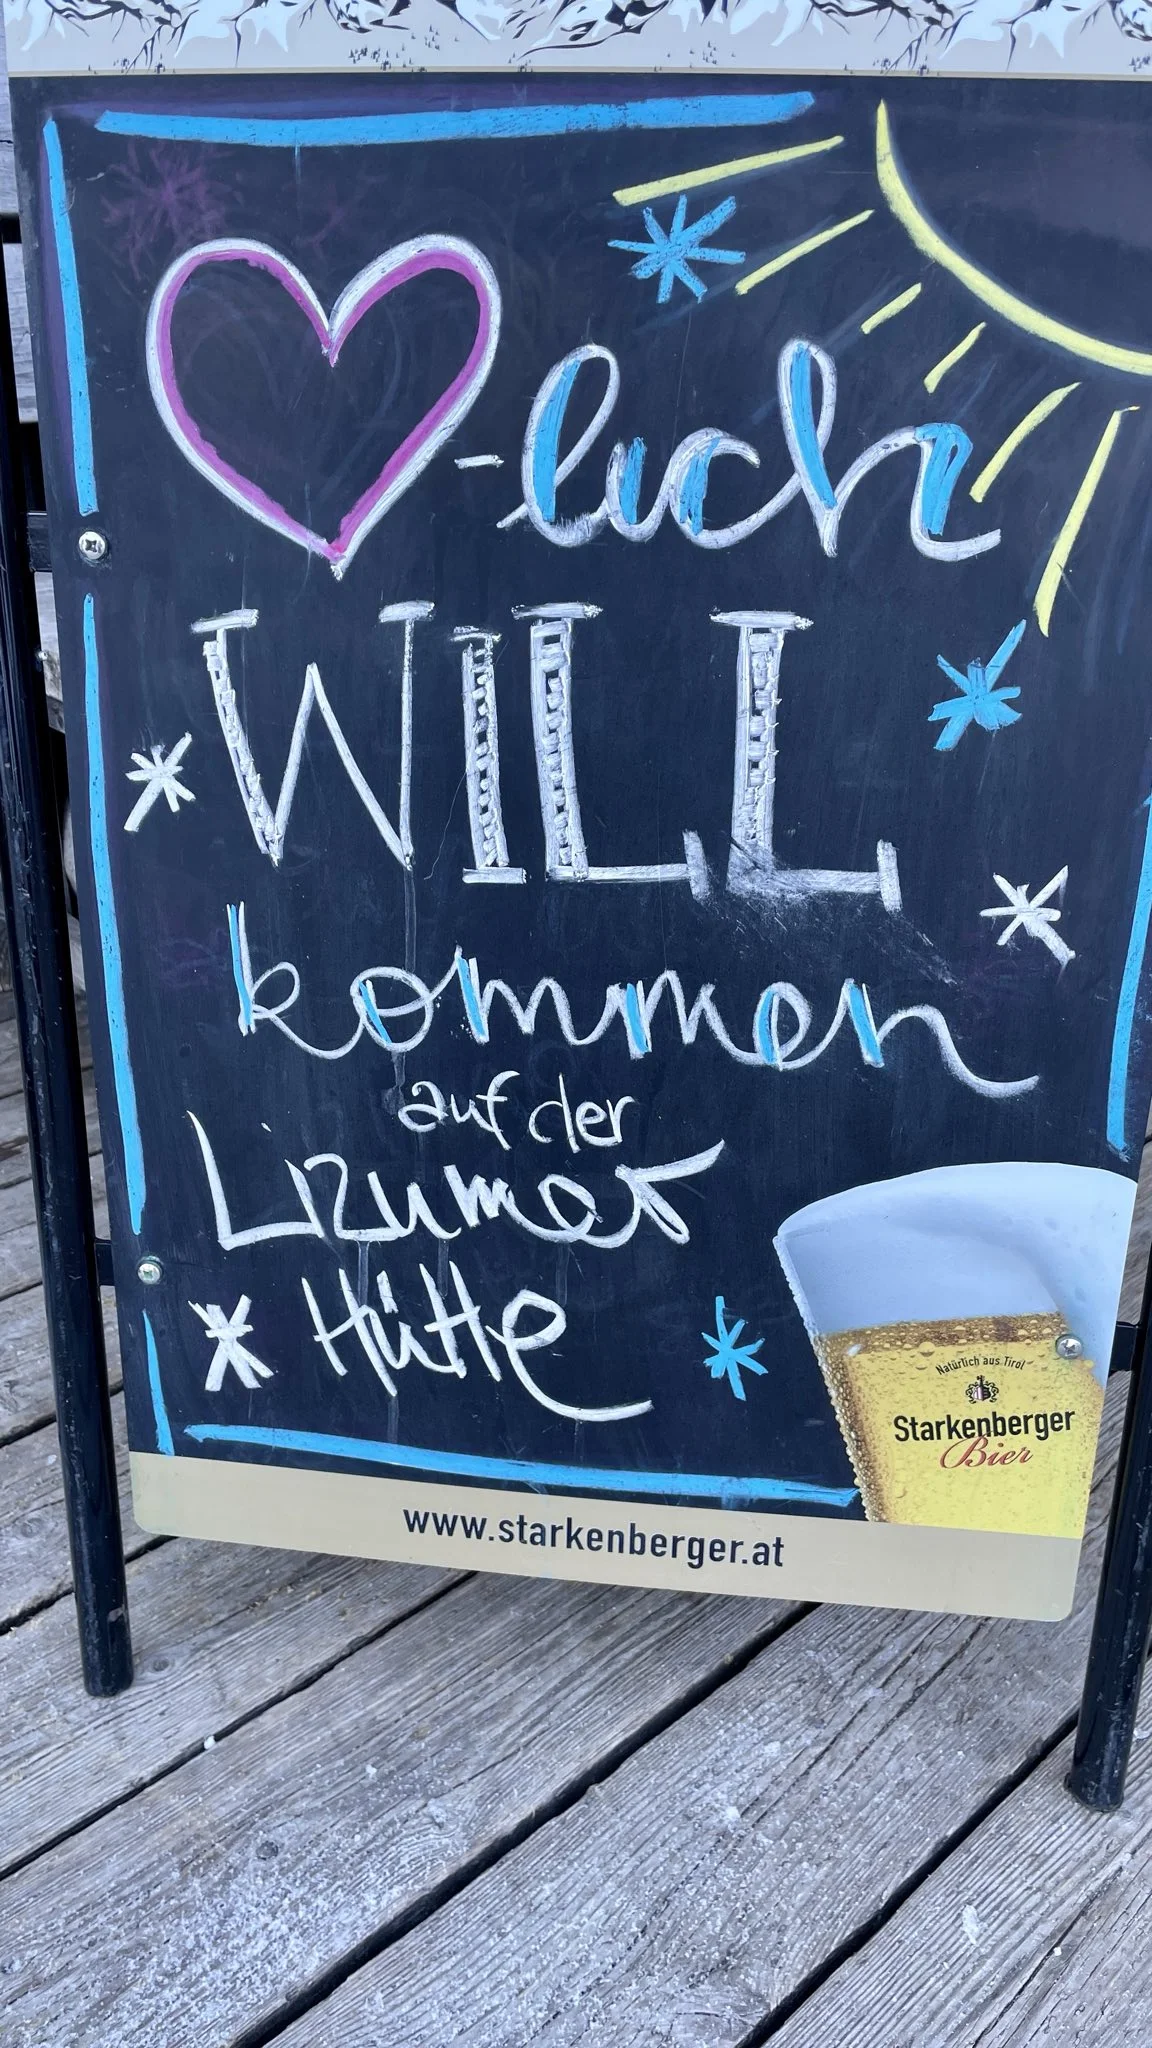 -lich
WILL
kommen
auf der
Lizumer
Hütte
Natürlich aus Tirol
Starkenberger
Bier
www.starkenberger.at